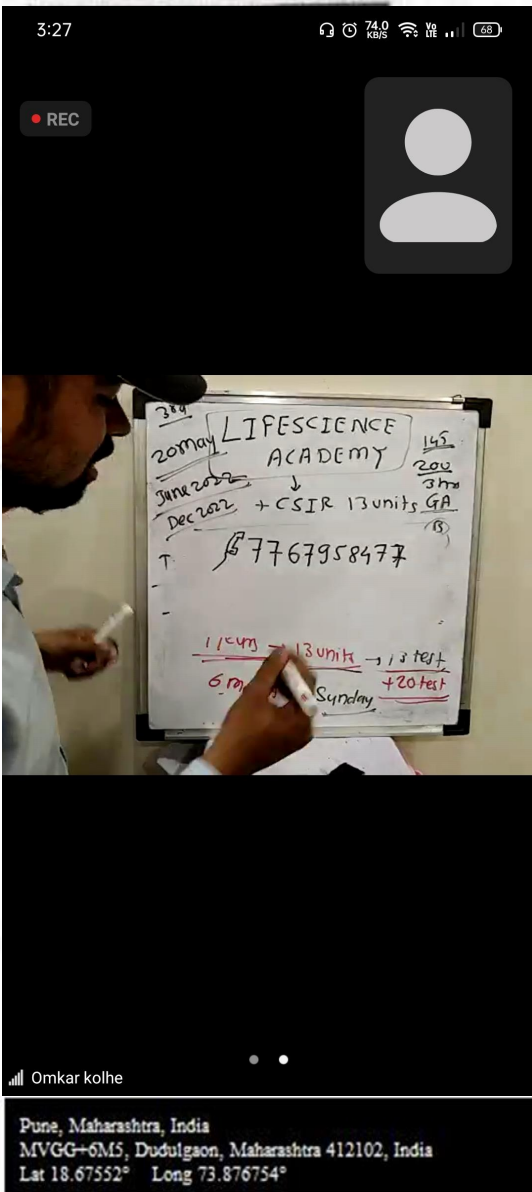 3:27
74.0 KB/S Vo LTE 68
REC
3rd
20 May LIFESCIENCE
ACADEMY
145
200
3 hrs
June 2022
Dec 2022 + CSIR 13 units GA
B
T
7767958477
13 units → 13 test
6 Sunday +20 test
Omkar kolhe
Pune, Maharashtra, India
MVGG+6M5, Dudulgaon, Maharashtra 412102, India
Lat 18.67552° Long 73.876754°